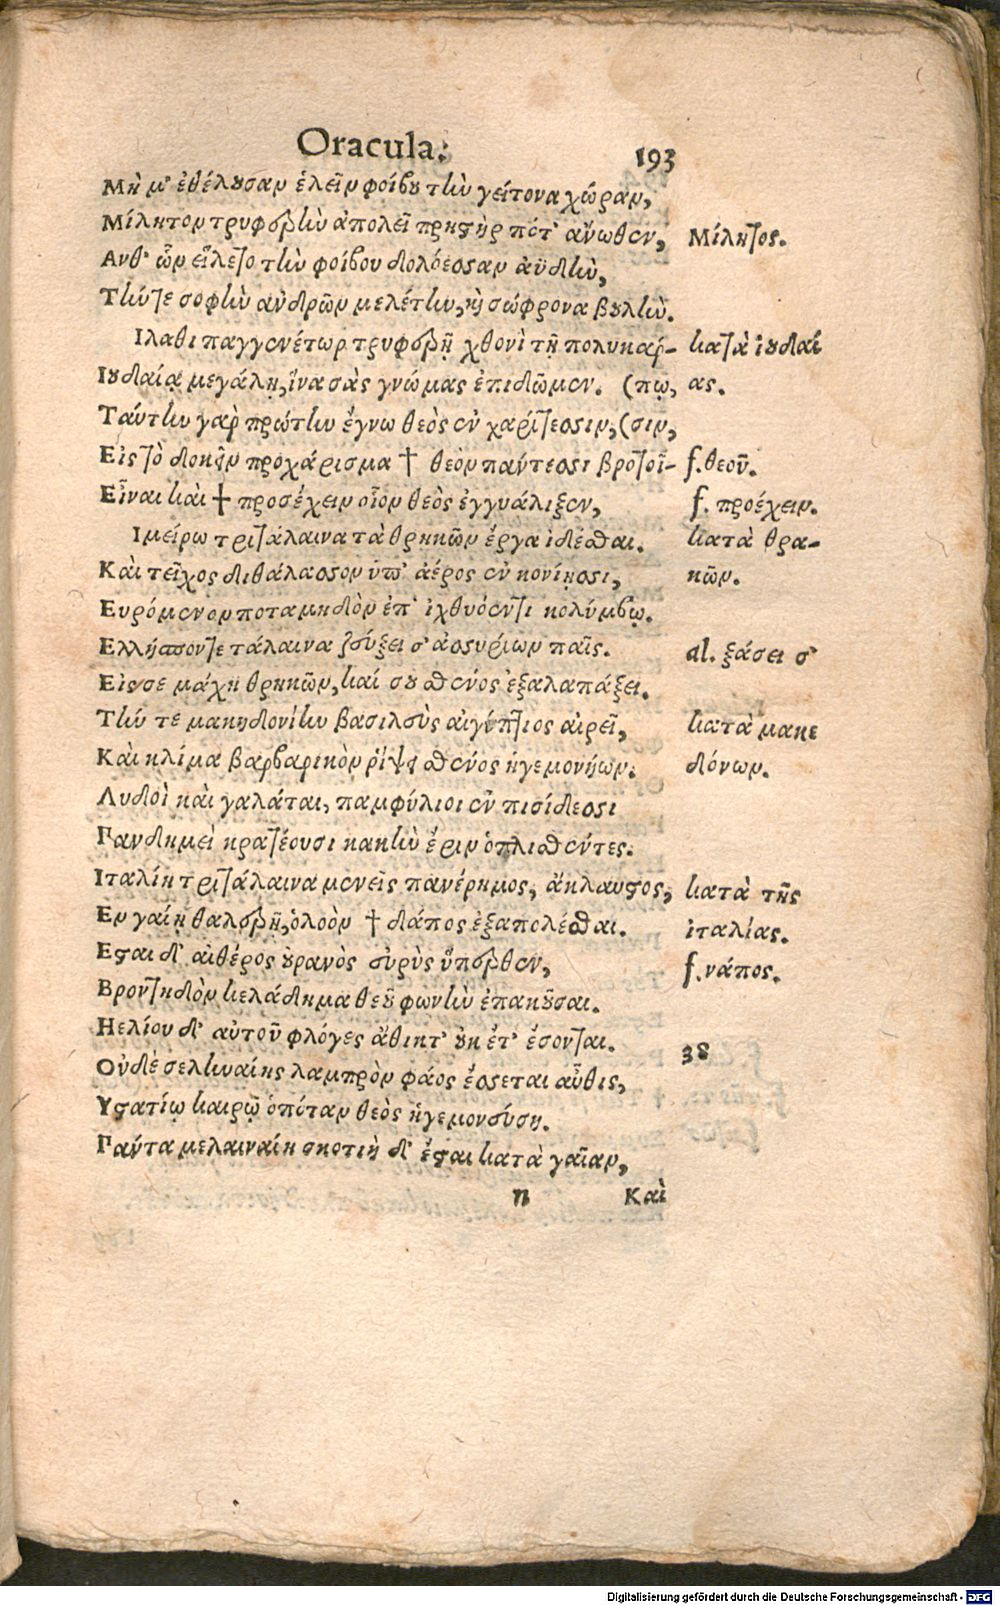 Oracula. 193
Μὴ μ' ἐθέλουσαν ἑλεῖν φοίβου τὴν γείτονα χώραν,
Μίλητον τρυφερὴν ἀπολεῖ πρηστήρ πότ' ἄνωθεν, Μίλητος.
Ανθ' ὧν εἵλετο τὴν φοίβου δολόεσσαν ἀϋδὴν,
Τήντε σοφὴν ἀνδρῶν μελέτην, καὶ σώφρονα βουλὴν.
Ιλαθι παγγενέτωρ τρυφερῇ χθονὶ τῇ πολυκάρ- κατὰ ἰουδαί
Ιουδαίᾳ μεγάλῃ, ἵνα σὰς γνώμας ἐπιδῶμεν. (πῳ, ας.
Ταύτην γαρ πρώτην ἔγνω θεὸς ἐν χαρίτεσσιν, (σιν,
Εἰς τὸ δοκεῖν προχάρισμα † θεὸν πάντεσσι βροτοῖ- f. θεοῦ.
Εἶναι καὶ † προσέχειν οἷον θεὸς ἐγγυάλιξεν, f. προέχειν.
Ιμείρω τριτάλαινα τὰ θρηκῶν ἔργα ἰδέσθαι. κατὰ θρα-
Καὶ τεῖχος διθάλασσον ὑπ' ἀέρος ἐν κονίῃσι, κῶν.
Ευρόμενον ποταμηδὸν ἐπ' ἰχθυόεντι κολύμβῳ.
Ελλήσποντε τάλαινα ζεύξει σ' ἀσσυρίων παῖς. al. ξάσει σ'
Εἰς σε μάχη θρηκῶν, καί σου σθένος ἐξαλαπάξει.
Τήν τε μακηδονίην βασιλεὺς αἰγύπτιος αἱρεῖ, κατὰ μακε
Καὶ κλίμα βαρβαρικὸν ῥίψει σθένος ἡγεμονήων. δόνων.
Λυδοὶ καὶ γαλάται, παμφύλιοι ἐν πισίδεσσι
Πανδημεὶ κρατέουσι κακὴν ἔριν ὁπλισθέντες.
Ιταλίη τριτάλαινα μενεῖς πανέρημος, ἄκλαυστος, κατὰ τῆς
Εν γαίῃ θαλερῇ, ὁλοὸν † δάπος ἐξαπολέσθαι. ἰταλίας.
Εσται δ' αἰθέρος οὐρανὸς εὐρὺς ὕπερθεν, f. νάπος.
Βροντηδὸν κελάδημα θεοῦ φωνὴν ἐπακοῦσαι.
Ηελίου δ' αὐτοῦ φλόγες ἄθικτ' οὐκ ἔτ' ἔσονται.
Οὐδὲ σεληναίης λαμπρὸν φάος ἔσσεται αὖθις, 38
Υστατίῳ καιρῷ ὁπόταν θεὸς ἡγεμονεύσῃ.
Πάντα μελαιναίη σκοτιὴ δ' ἔσται κατὰ γαῖαν,
n Καὶ
Digitalisierung gefördert durch die Deutsche Forschungsgemeinschaft - DFG